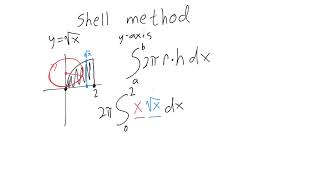 Shell method
y=√x
y-axis
∫ₐᵇ 2π r·h dx
√x
2
2π ∫₀² x √x dx